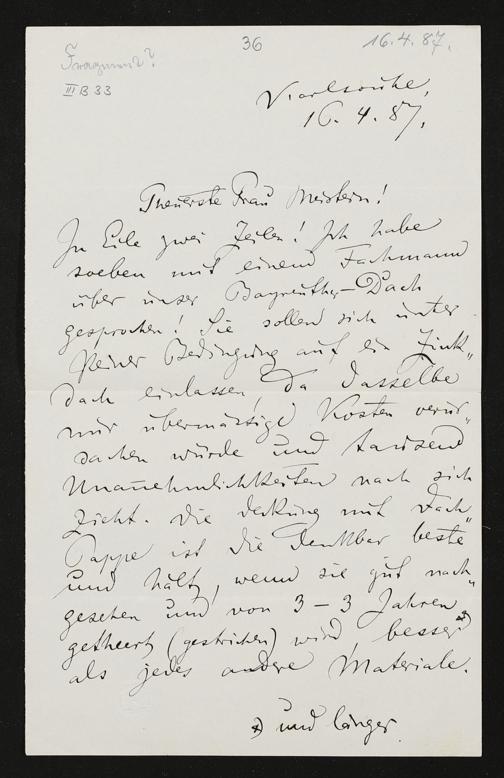 Fragment?
36
16.4.87.
III B 33
Karlsruhe,
16. 4. 87,
Theuerste Frau Meisterin!
In Eile zwei Zeilen! Ich habe
soeben mit einem Fachmann
über unser Bayreuther-Dach
gesprochen! Sie sollen sich unter
keiner Bedingung auf ein Zink„
dach einlassen, da dasselbe
nur übermässige Kosten verur„
sachen würde und tausend
Unannehmlichkeiten nach sich
zieht. Die Deckung mit Dach„
Pappe ist die denkbar beste
und hält, wenn sie gut nach„
gesehen und von 3 – 3 Jahren
getheert (gestrichen) wird, besser
als jedes andere Materiale.
und länger